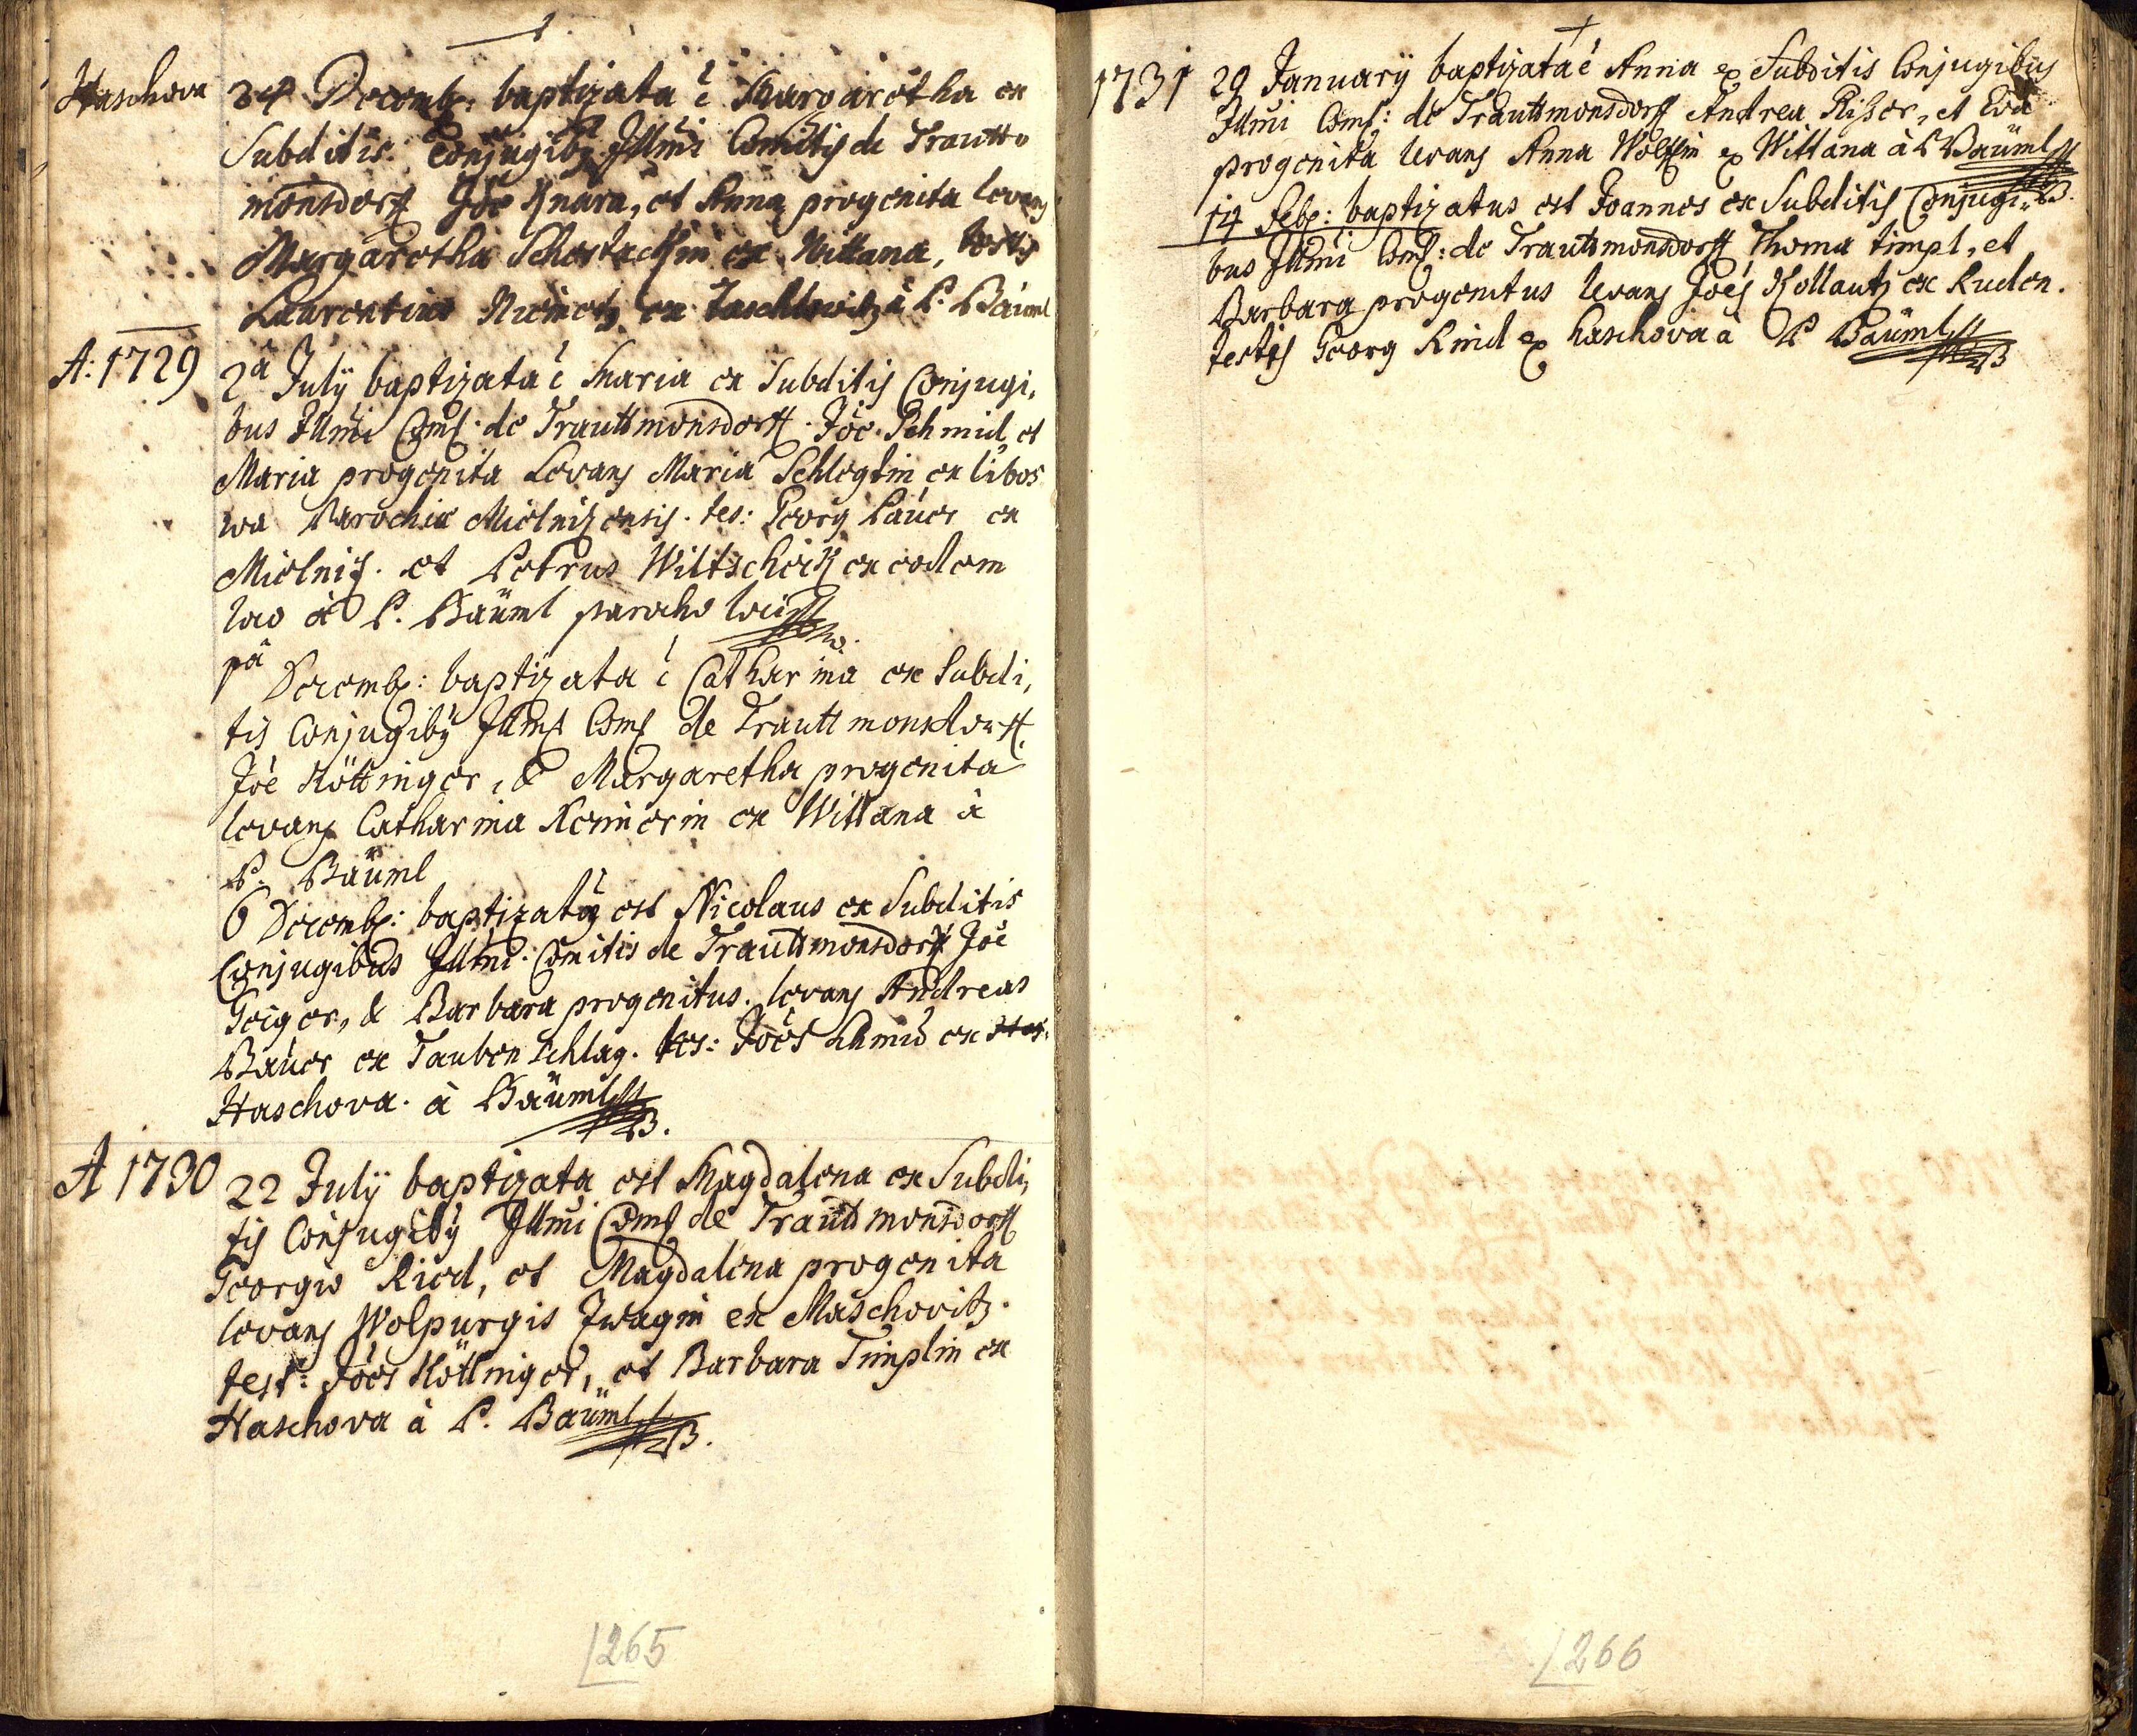 Haschova
24 Decemb: baptizata ē Margaretha ex
Subditis Conjugibq Illmi Comitis de Trautt-
monsdorff Joe Knara, et Anna progenita levans
Margaretha ex Wittana, testis
Laurentius Niemetz ex Taschlowitz à P. Bäuml
A: 1729
2â July baptizata ē Maria ex Subditis Conjugi,
bus Illmi Coms. de Trauttmonsdorff. Joe. Schmid, et
Maria progenita Levans Maria Schleglin ex Libos
wa Parochia Mielnizensis. tes: Georg Pauer ex
Mielnis. et Petrus Wiltscheck ex eodem
loco à P. Bäuml parocho loci
pâ Decemb: baptizata ē Catharina ex Subdi,
tis Conjugibq Illmi Coms de Trauttmonsdorff,
Joe Höttinger, & Margaretha progenita
levans Catharina Kerinerin ex Wittana à
P. Bäuml
6 Decemb: baptizatq est Nicolaus ex Subditis
Conjugibus Illmi. Comitis de Trauttmonsdorff Joe
Geiger, & Barbara progenitus. levans Andreas
Bauer ex Taubenschlag. tes: Joes Schmid ex Has,
Haschova. à Bäuml
A 1730
22 July baptizata est Magdalena ex Subdi,
tis Conjugibq Illmi Coms de Trauttmonsdorff
Georgio Ried, et Magdalena progenita
levans Wolpurgis Zwagin ex Maschovitz.
test: Joes Höttinger, et Barbara Timplin ex
Haschova à P. Bäuml
265
1731
29 January baptizata ē Anna ex Subditis Conjugibus
Illmi Coms: de Trauttmonsdorff Andrea Rißer, et Eva
progenita levans Anna Wölflin ex Wittana à P Bäuml
14 Feb: baptizatus est Joannes ex Subditis Conjugi-
bus Illmi Coms: de Trauttmonsdorff Thoma timpl, et
Barbara progenitus levans Joes Kollautz ex Ruden.
testis Georg Rind ex haschova à P Bäuml
266